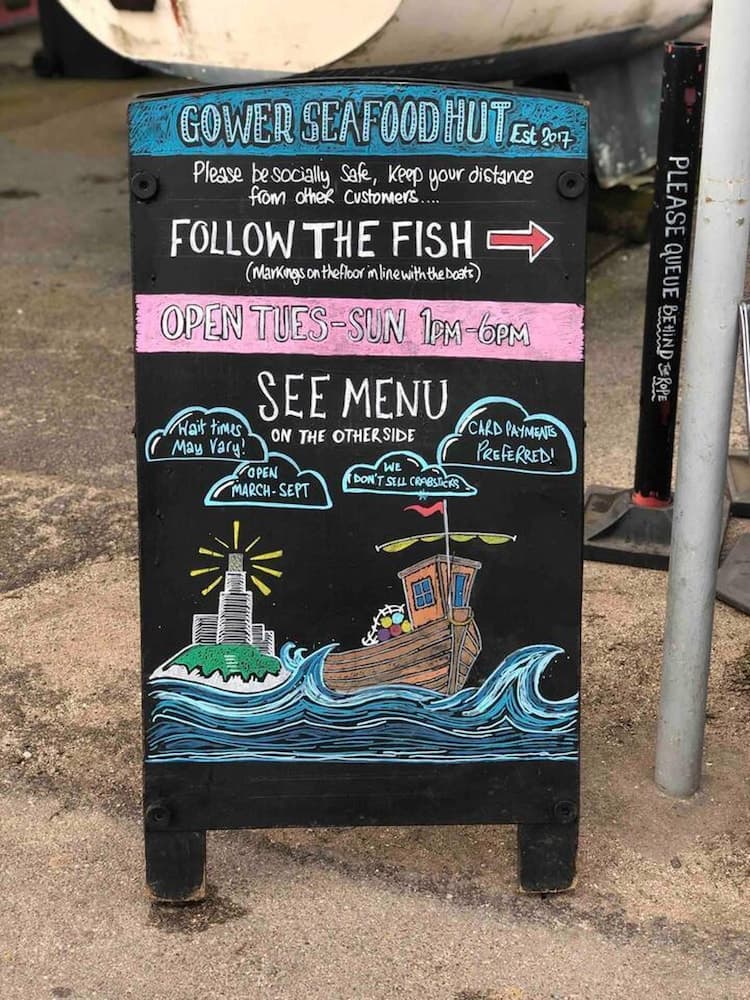 GOWER SEAFOOD HUT Est 2017
Please be socially safe, Keep your distance
from other customers....
FOLLOW THE FISH
(Markings on the floor in line with the boats)
OPEN TUES-SUN 1PM-6PM
SEE MENU
ON THE OTHERSIDE
Wait times
May Vary!
OPEN
MARCH-SEPT
WE
DON'T SELL CRABSTICKS
CARD PAYMENTS
PREFERRED!
PLEASE QUEUE BEHIND THE ROPE